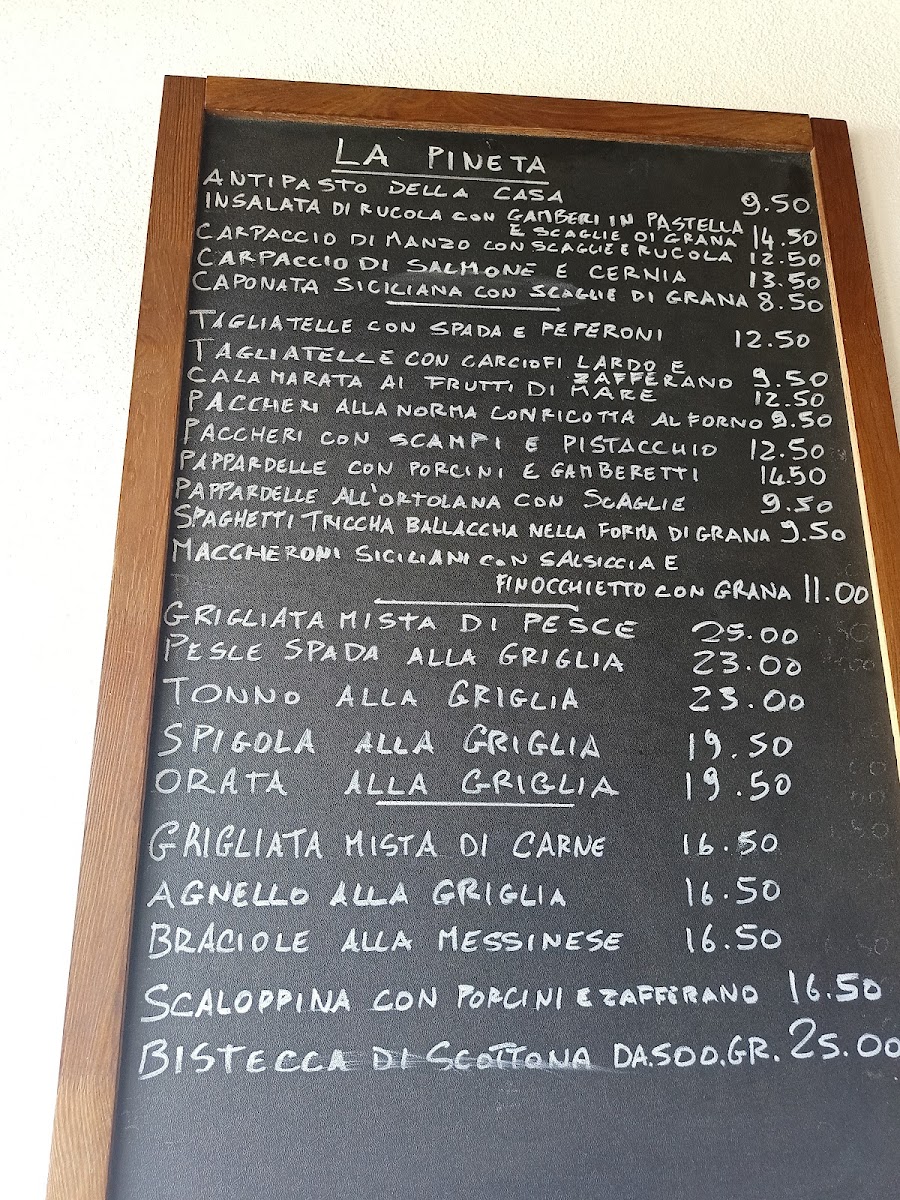 LA PINETA
ANTIPASTO DELLA CASA 9.50
INSALATA DI RUCOLA CON GAMBERI IN PASTELLA
E SCAGLIE DI GRANA 14.50
CARPACCIO DI MANZO CON SCAGLIE E RUCOLA 12.50
CARPACCIO DI SALMONE E CERNIA 13.50
CAPONATA SICILIANA CON SCAGLIE DI GRANA 8.50
TAGLIATELLE CON SPADA E PEPERONI 12.50
TAGLIATELLE CON CARCIOFI LARDO E
ZAFFERANO 9.50
CALAMARATA AI FRUTTI DI MARE 12.50
PACCHERI ALLA NORMA CON RICOTTA AL FORNO 9.50
PACCHERI CON SCAMPI E PISTACCHIO 12.50
PAPPARDELLE CON PORCINI E GAMBERETTI 14.50
PAPPARDELLE ALL'ORTOLANA CON SCAGLIE 9.50
SPAGHETTI TRICCHA BALLACCHA NELLA FORMA DI GRANA 9.50
MACCHERONI SICILIANI CON SALSICCIA E
FINOCCHIETTO CON GRANA 11.00
GRIGLIATA MISTA DI PESCE 25.00
PESCE SPADA ALLA GRIGLIA 23.00
TONNO ALLA GRIGLIA 23.00
SPIGOLA ALLA GRIGLIA 19.50
ORATA ALLA GRIGLIA 19.50
GRIGLIATA MISTA DI CARNE 16.50
AGNELLO ALLA GRIGLIA 16.50
BRACIOLE ALLA MESSINESE 16.50
SCALOPPINA CON PORCINI E ZAFFERANO 16.50
BISTECCA DI SCOTTONA DA.500.GR. 25.00